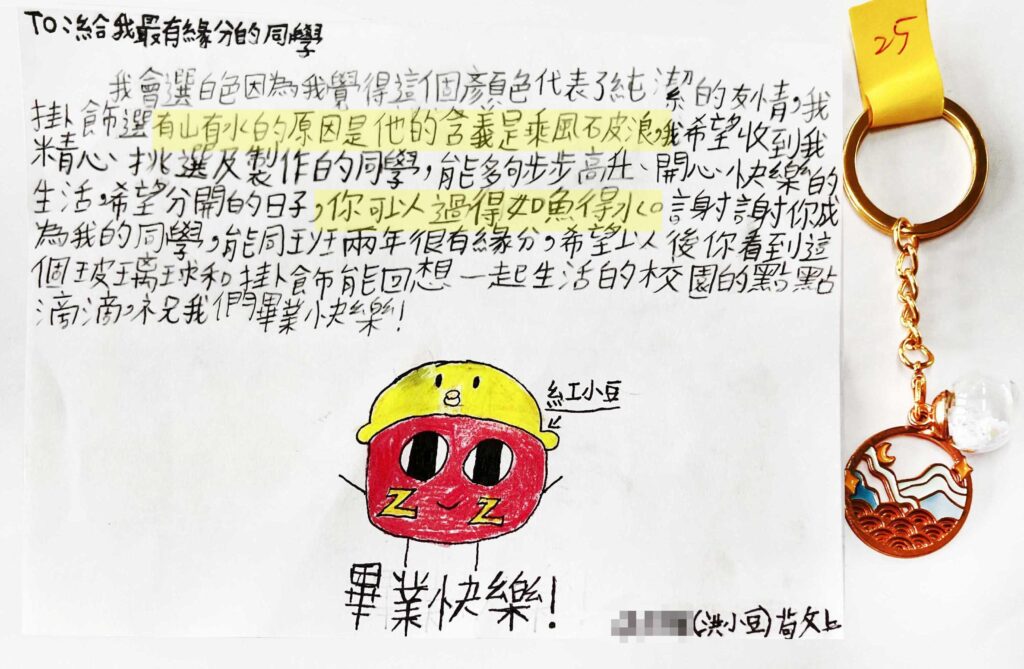 TO:給我最有緣分的同學
我會選白色因為我覺得這個顏色代表了純潔的友情,我
掛飾選有山有水的原因是他的含義是乘風破浪,我希望收到我
精心挑選及製作的同學,能夠步步高升、開心快樂的
生活,希望分開的日子,你可以過得如魚得水。謝謝你成
為我的同學,能同班兩年很有緣分,希望以後你看到這
個玻璃球和掛飾能回想一起生活的校園的點點
滴滴,祝我們畢業快樂!
紅小豆
Z Z
畢業快樂!
(洪小豆)敬上
25